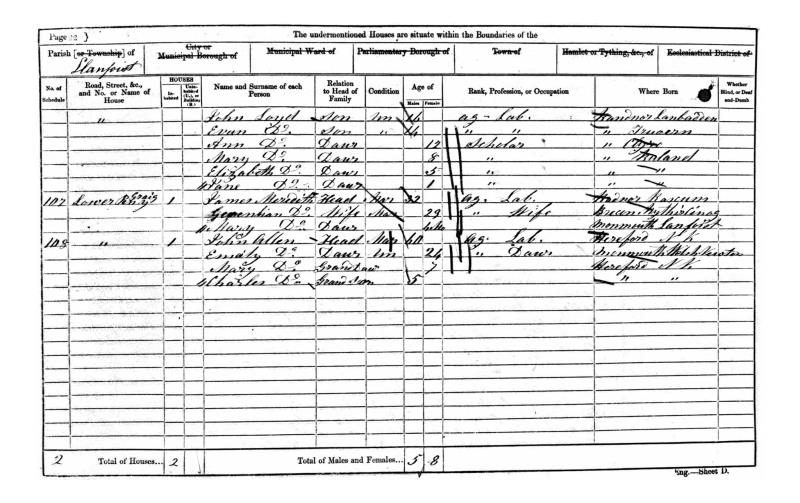 Page 22 } The undermentioned Houses are situate within the Boundaries of the
Parish [or Township] of City or Municipal Borough of Municipal Ward of Parliamentary Borough of Town of Hamlet or Tything, &c., of Ecclesiastical District of
Llanfoist
No. of Schedule Road, Street, &c., and No. or Name of House HOUSES Inhabited Uninhabited (U.), or Building (B.) Name and Surname of each Person Relation to Head of Family Condition Age of Males Females Rank, Profession, or Occupation Where Born Whether Blind, or Deaf and-Dumb
" John Loyd Son Un 16 ag - Lab.
Evan Do. Son " 14 " " "
Ann Do. Daur 12 Scholar "
Mary Do. Daur 8 " "
Elizabeth Do. Daur 5 " " "
Jane Do. Daur 1 " "
107 Lower 1 James Meredith Head Mar 32 Ag. Lab. Radnor
Do. Wife Mar 29 " Wife
Mary Do. Daur Monmouth Lanfoist
108 " 1 John Allen Head Mar 60 Ag. Lab. Hereford N. K
Emily Do. Daur Un 24 " Daur Monmouth
Mary Do. Grand Daur 7 Hereford N. K
Charles Do. Grand Son 5 " "
2 Total of Houses... 2 Total of Males and Females... 5 8
Eng.—Sheet D.